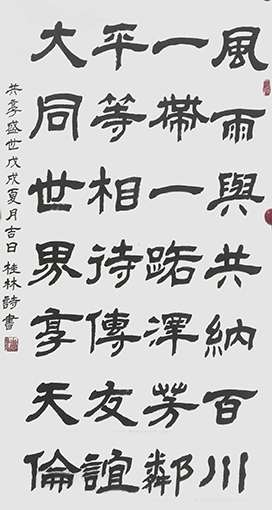 風雨與共納百川
一帶一路澤芳鄰
平等相待傳友誼
大同世界享天倫
共享盛世戊戌夏月吉日桂林詩書